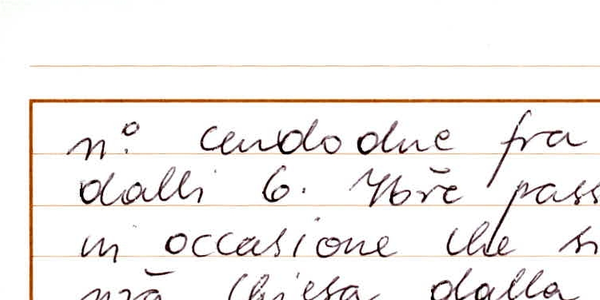 n.º centodue fra
dalli 6. 
in occasione che si
nrã chiesa dalla